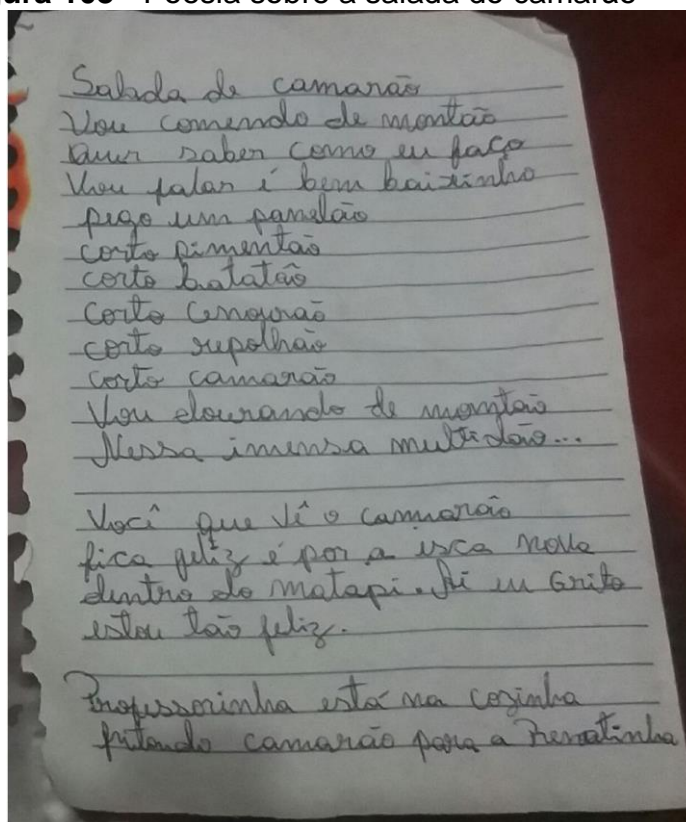 Salada de camarão
Vou comendo de montão
Quer saber como eu faço
Vou falar é bem baixinho
pego um panelão
corto pimentão
corto batatão
corto cenourão
corto repolhão
corto camarão
Vou dourando de montão
Nessa imensa multidão...
Você que vê o camarão
fica feliz é por a isca nova
dentro do matapi. Ai eu Grito
estou tão feliz.
Professorinha está na cozinha
fritando camarão para a Renatinha